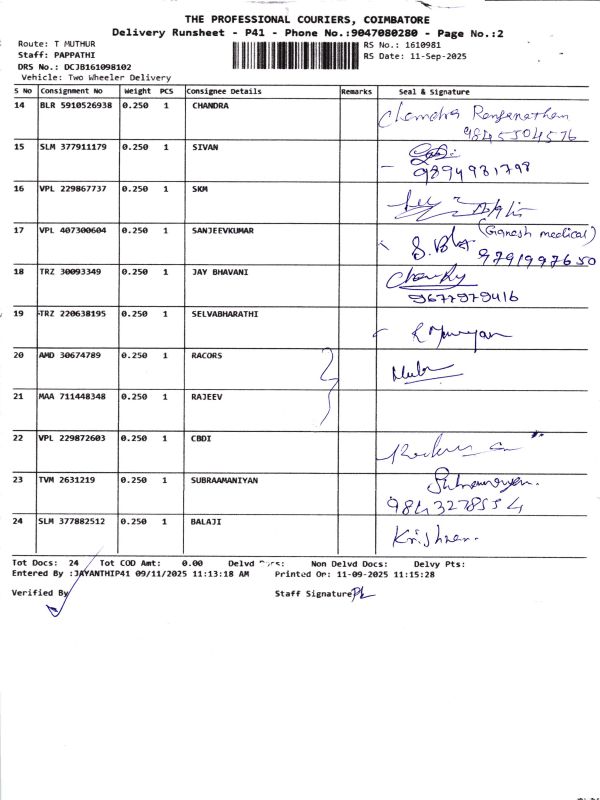 THE PROFESSIONAL COURIERS, COIMBATORE
Delivery Runsheet - P41 - Phone No.:9047080280 - Page No.:2
Route: T MUTHUR
Staff: PAPPATHI
DRS No.: DCJB161098102
Vehicle: Two Wheeler Delivery
RS No.: 1610981
RS Date: 11-Sep-2025
S No Consignment No Weight PCS Consignee Details Remarks Seal & Signature
14 BLR 5910526938 0.250 1 CHANDRA Chandra Ranganathan
9845504576
15 SLM 377911179 0.250 1 SIVAN
9894931798
16 VPL 229867737 0.250 1 SKM
17 VPL 407300604 0.250 1 SANJEEVKUMAR (Ganesh medical)
9791997650
18 TRZ 30093349 0.250 1 JAY BHAVANI
9677979416
19 TRZ 220638195 0.250 1 SELVABHARATHI
20 AMD 30674789 0.250 1 RACORS
21 MAA 711448348 0.250 1 RAJEEV
22 VPL 229872603 0.250 1 CBDI
23 TVM 2631219 0.250 1 SUBRAAMANIYAN
9843278554
24 SLM 377882512 0.250 1 BALAJI Krishnan.
Tot Docs: 24 Tot COD Amt: 0.00 Delvd Docs: Non Delvd Docs: Delvy Pts:
Entered By :JAYANTHIP41 09/11/2025 11:13:18 AM Printed On: 11-09-2025 11:15:28
Verified By Staff Signature